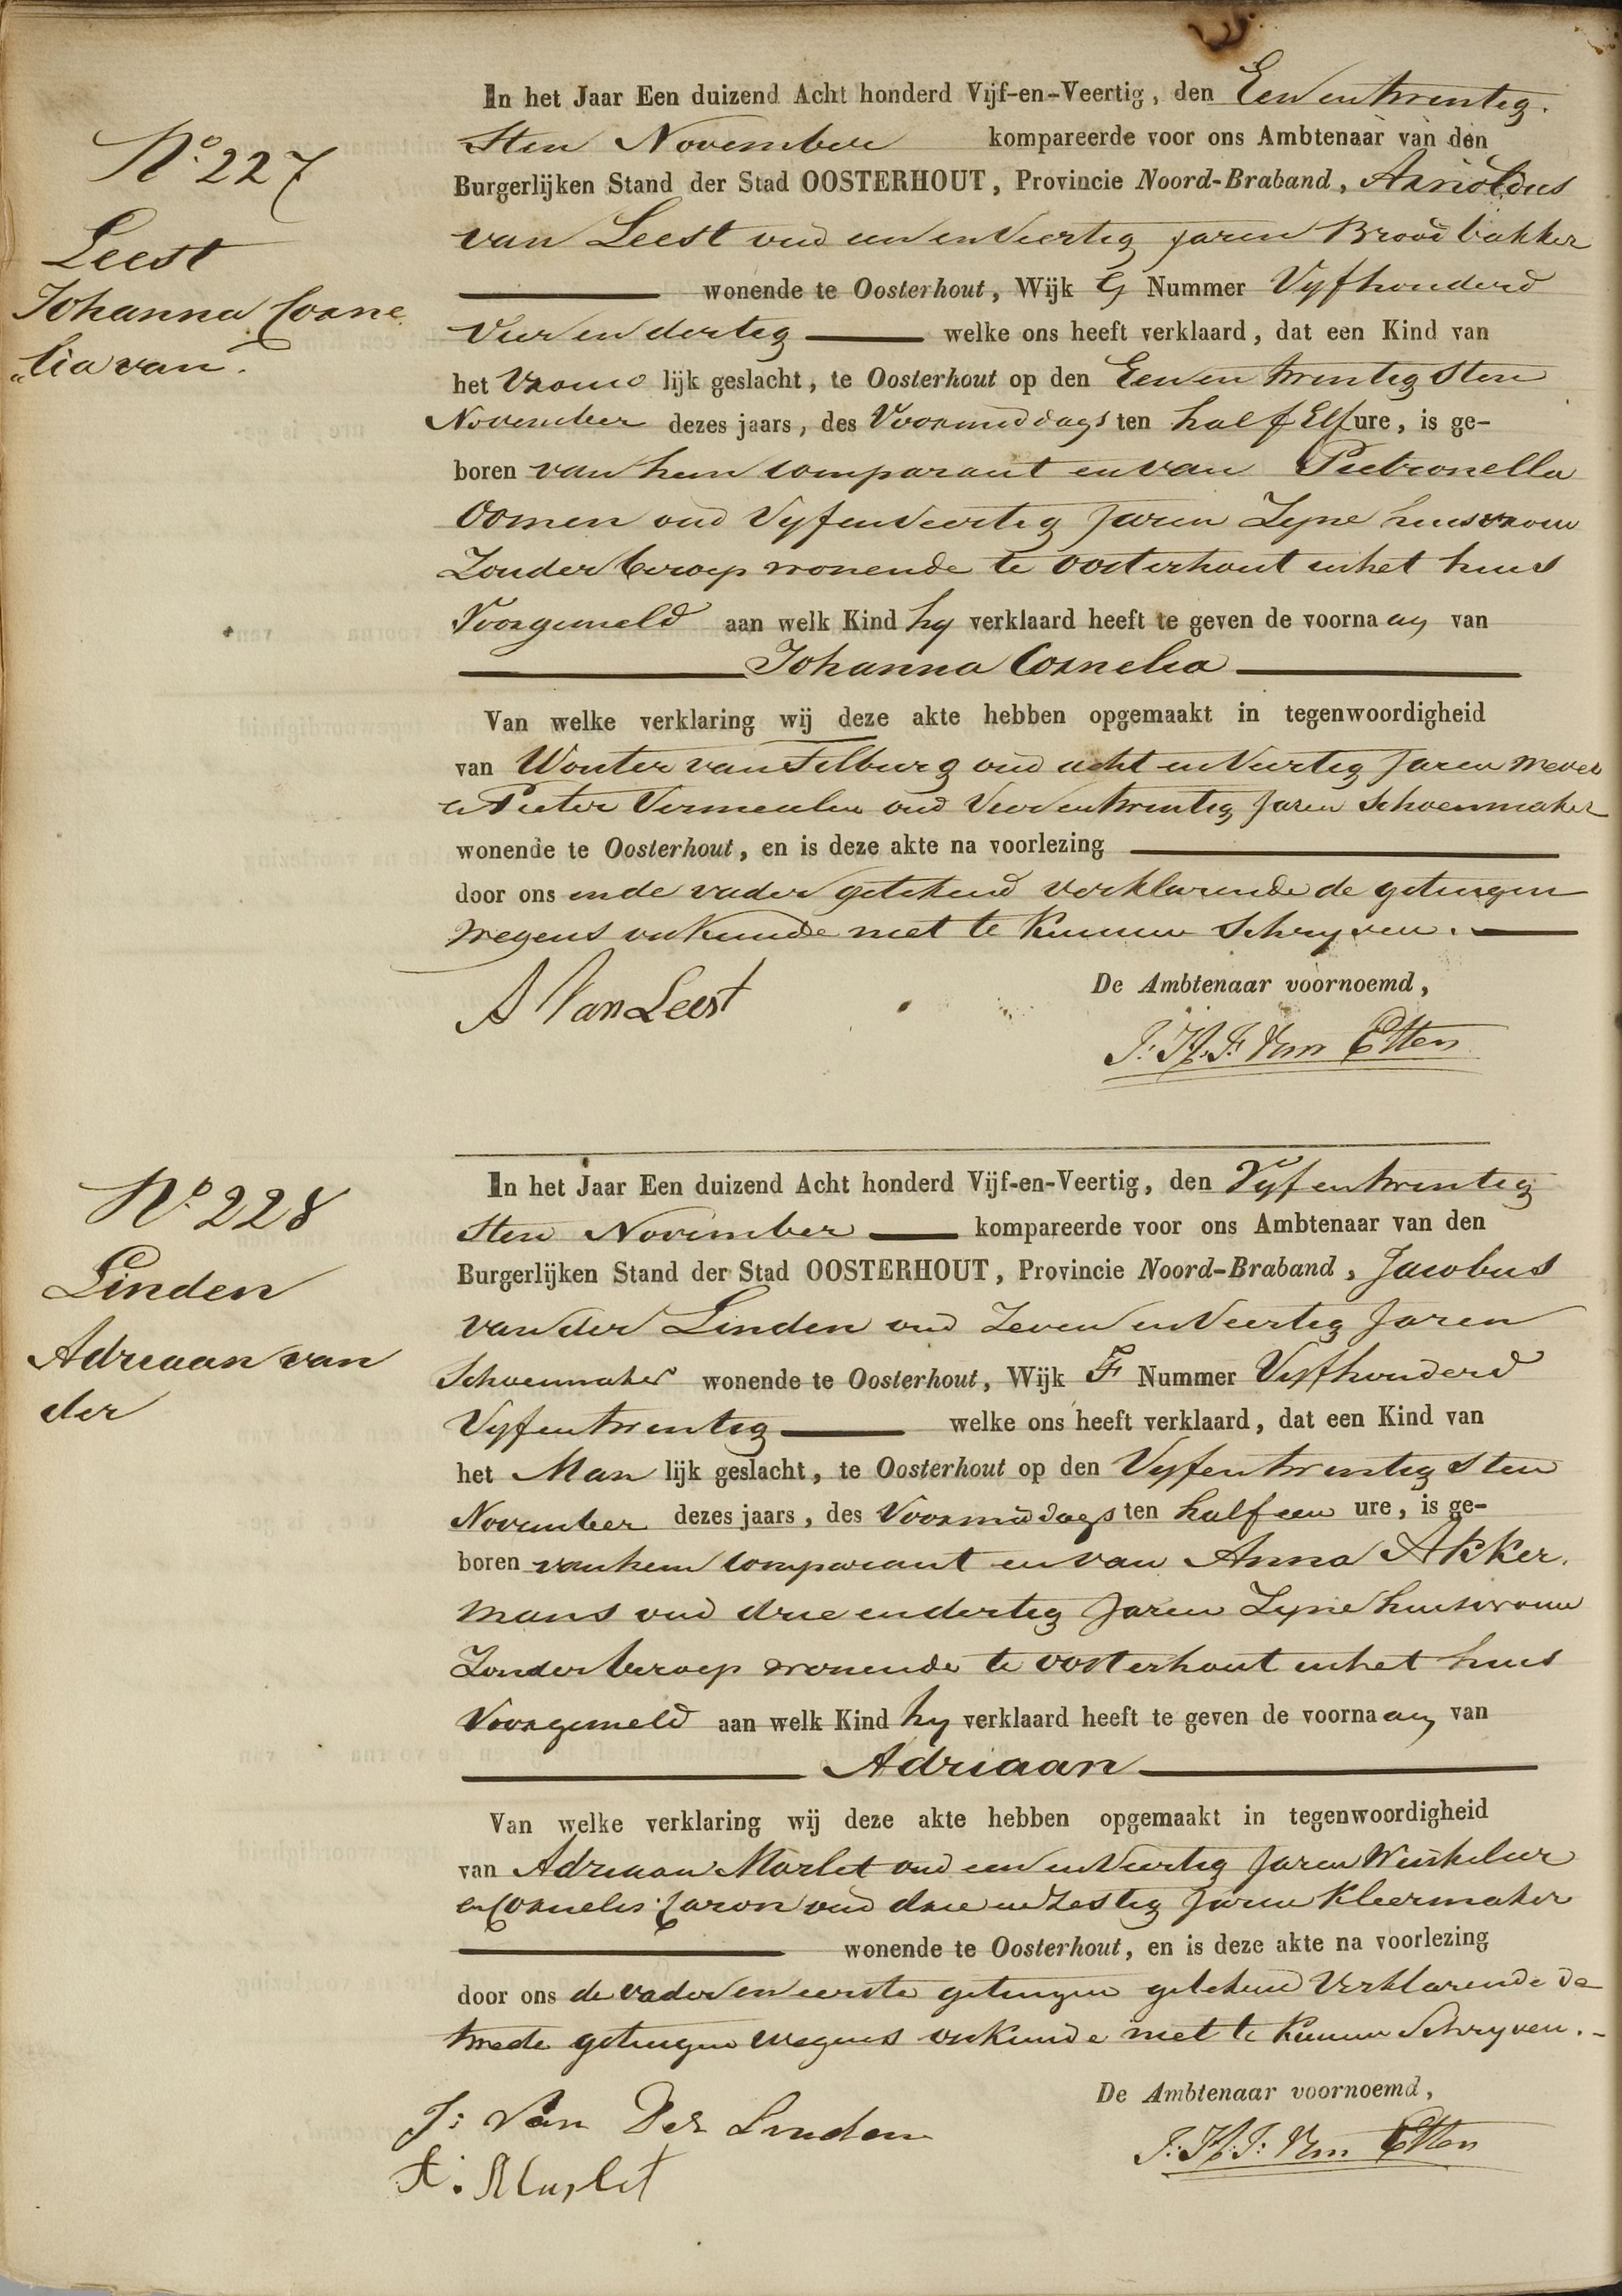 No. 227
Leest
Johanna Corne
"lia van.
In het Jaar Een duizend Acht honderd Vijf-en-Veertig, den Een en twintig
sten November kompareerde voor ons Ambtenaar van den
Burgerlijken Stand der Stad OOSTERHOUT, Provincie Noord-Braband, Arnoldus
van Leest oud een en Veertig jaren Broodbakker
wonende te Oosterhout, Wijk G Nummer Vyfhonderd
Vier en dertig welke ons heeft verklaard, dat een Kind van
het Vrouwe lijk geslacht, te Oosterhout op den Een en twintigsten
November dezes jaars, des Voormiddags ten half Elf ure, is ge-
boren van hem Comparant en van Pietronella
Oomen oud Vyf en Veertig Jaren Zyne huisvrouw
Zonder beroep wonende te oosterhout in het huis
Voorgemeld aan welk Kind hy verklaard heeft te geven de voorna am van
Johanna Cornelia
Van welke verklaring wij deze akte hebben opgemaakt in tegenwoordigheid
van Wouter van Tilburg oud acht en Veertig Jaren Wever
en Pieter Vermeulen oud Vier en twintig Jaren Schoenmaker
wonende te Oosterhout, en is deze akte na voorlezing
door ons en de vader getekend verklarende de getuigen
wegens onkunde niet te kunnen Schryven.
A Van Leest
De Ambtenaar voornoemd,
J. H. F. Van Etten
No. 228
Linden
Adriaan van
der
In het Jaar Een duizend Acht honderd Vijf-en-Veertig, den Vyf en twintig
sten November kompareerde voor ons Ambtenaar van den
Burgerlijken Stand der Stad OOSTERHOUT, Provincie Noord-Braband, Jacobus
van der Linden oud Zeven en Veertig Jaren
Schoenmaker wonende te Oosterhout, Wijk F Nummer Vyfhonderd
Vyf en twintig welke ons heeft verklaard, dat een Kind van
het Man lijk geslacht, te Oosterhout op den Vyf en twintigsten
November dezes jaars, des Voormiddags ten half een ure, is ge-
boren van hem Comparant en van Anna Akker.
mans oud drie en dertig Jaren Zyne huisvrouw
Zonder beroep wonende te oosterhout in het huis
Voorgemeld aan welk Kind hy verklaard heeft te geven de voorna am van
Adriaan
Van welke verklaring wij deze akte hebben opgemaakt in tegenwoordigheid
van Adriaan Marlet oud een en Veertig Jaren Winkelier
en Cornelis Caron oud drie en Zestig Jaren Kleermaker
wonende te Oosterhout, en is deze akte na voorlezing
door ons de vader en eerste getuigen getekend Verklarende de
twede getuigen wegens onkunde niet te kunnen Schryven.
J: Van Der Linden
A: Marlet
De Ambtenaar voornoemd,
J: H: F: Van Etten